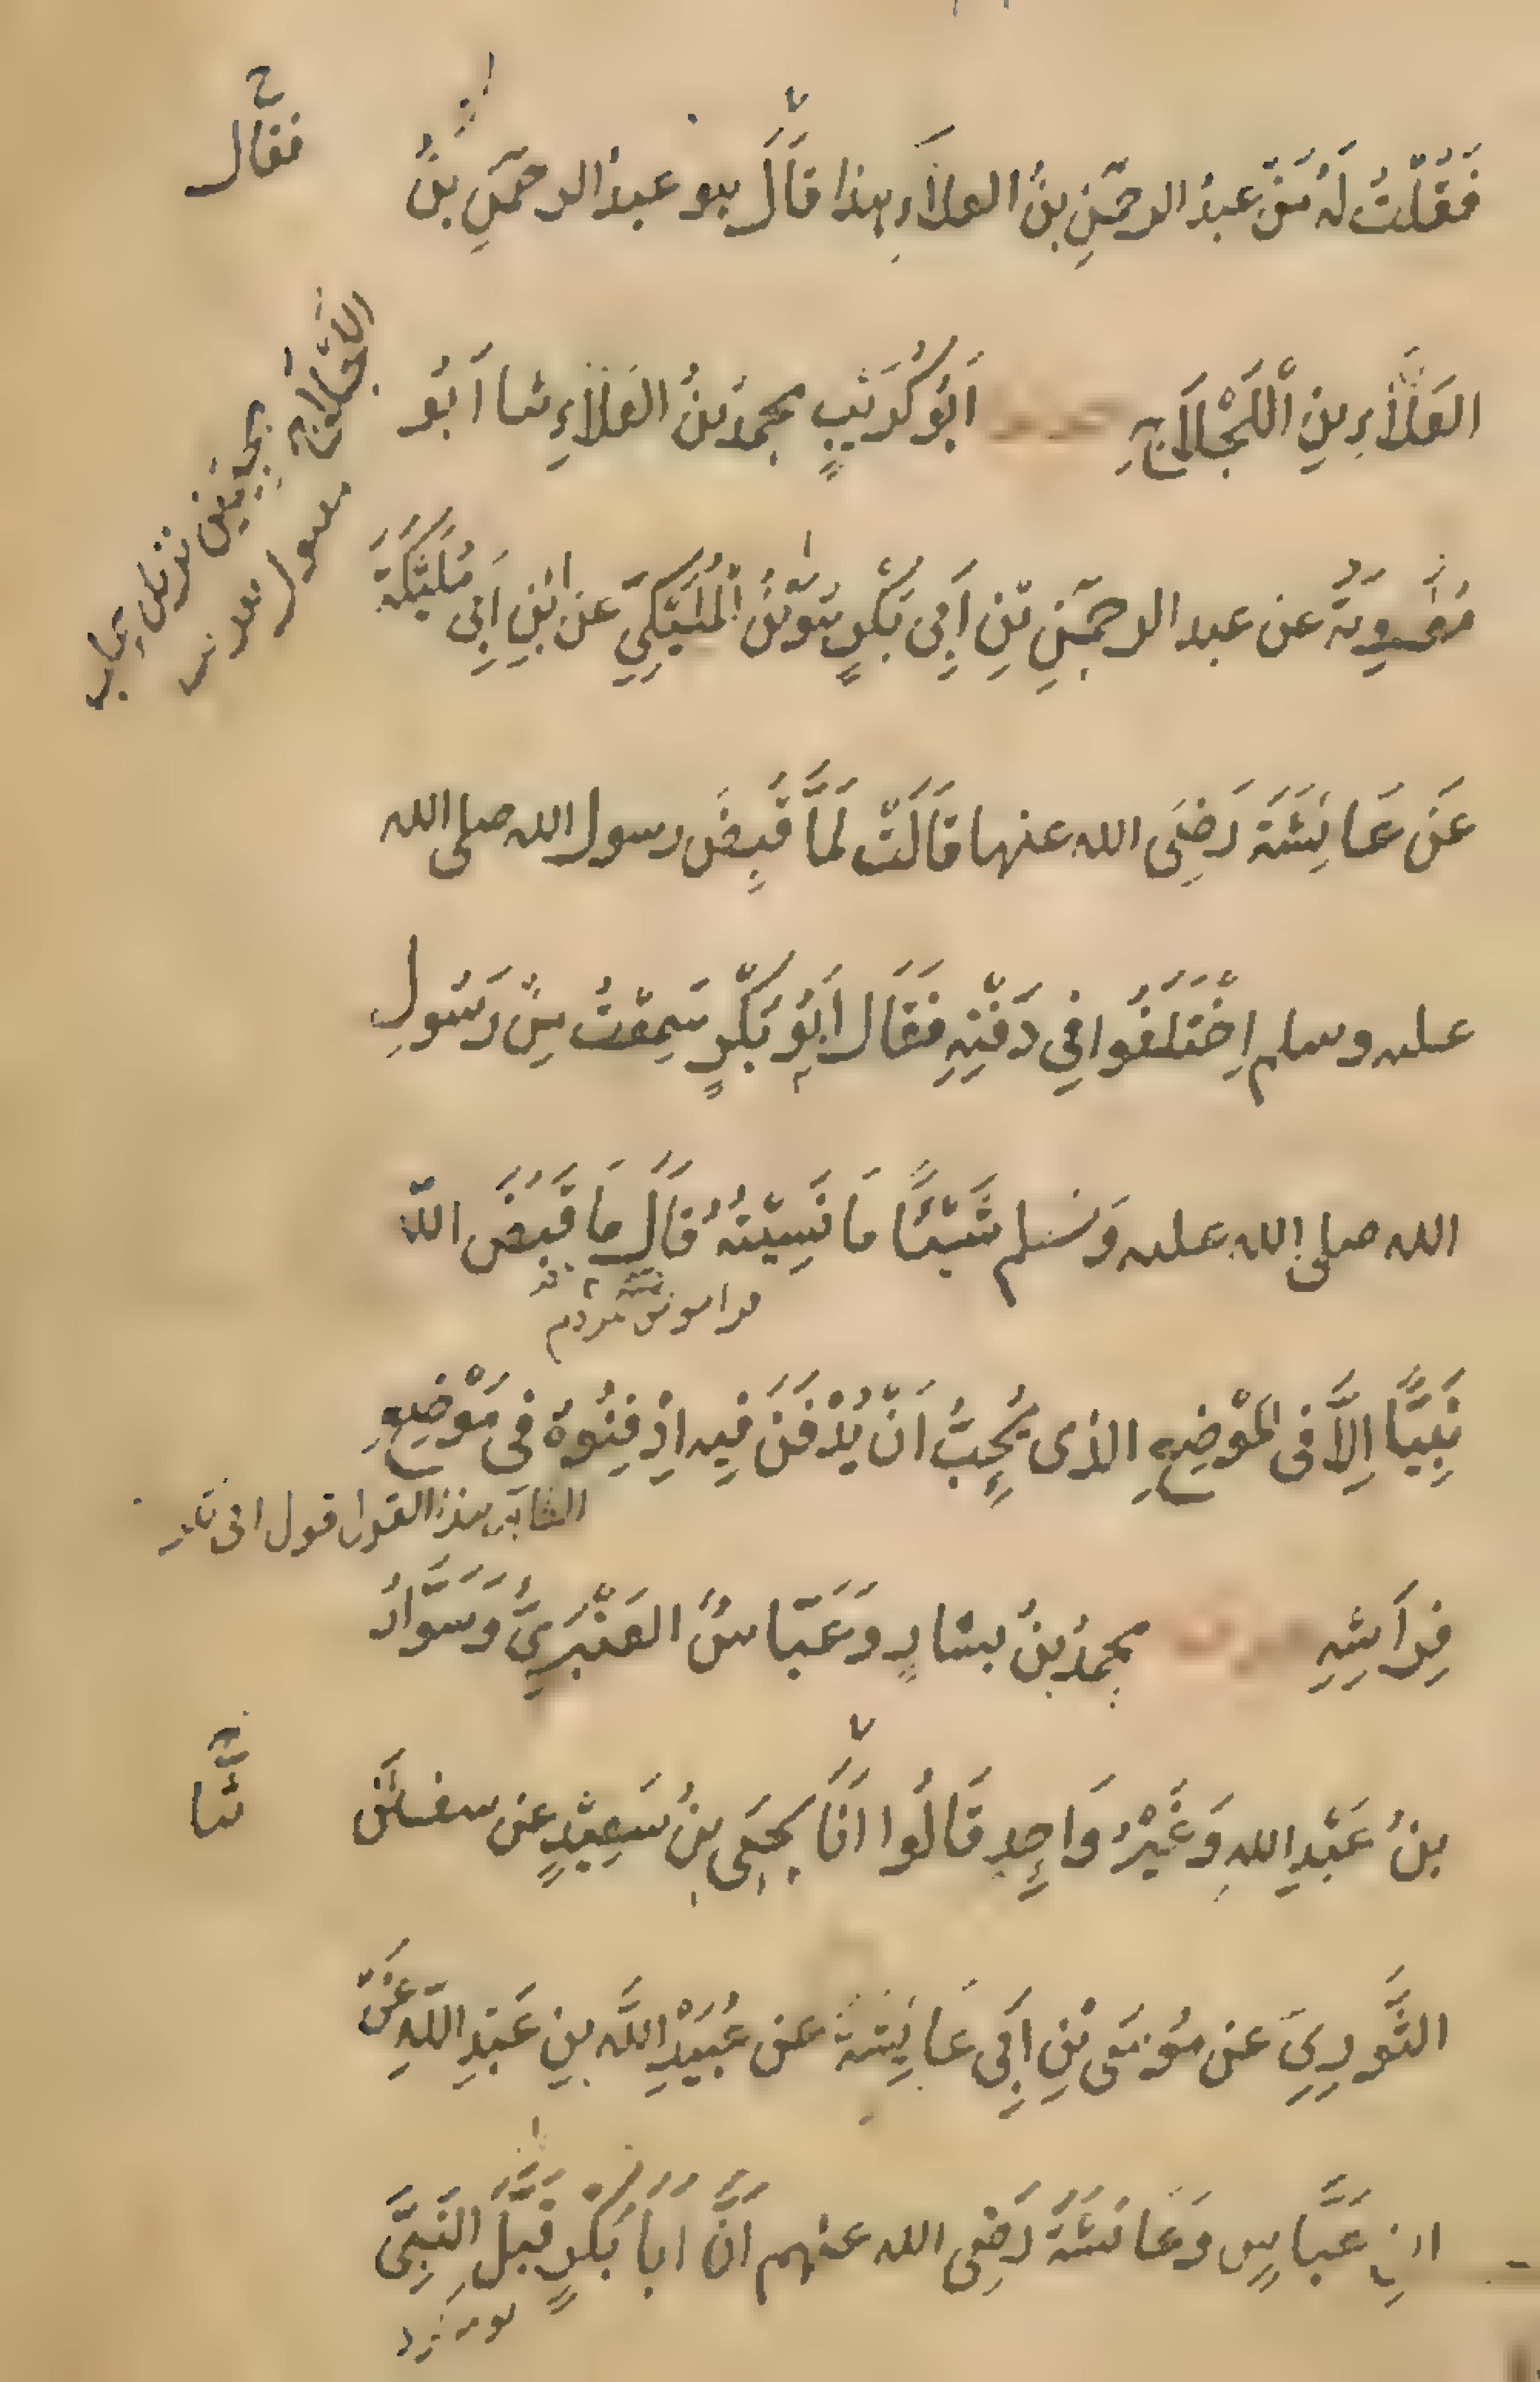 فَقُلْتُ لَهُ مَنْ عبدُ الرحمٰنِ بنُ العلاَءِ هذا قَالَ هو عبدُ الرحمٰنِ بنُ
فقال
العَلَاءِ بنِ اللَّجْلَاجِ حدثنا اَبُو كُرَيْبٍ محمدُ بنُ العَلاَءِ ثنا اَبُو
مُعَٰوِيَةَ عن عبد الرحمٰنِ بْنِ اَبِى بَكْرٍ هُوَ ابْنُ الْمُلَيْكِيِّ عن ابْنِ اَبِى مُلَيْكَةَ
عَن عَائِشَةَ رَضِىَ الله عنها قَالَتْ لَمَّا قُبِضَ رسول الله صلى الله
عليه وسلم اِخْتَلَفُوا فِي دَفْنِهِ فَقَالَ اَبُو بَكْرٍ سَمِعْتُ مِنْ رَسُولِ
الله صلى الله عليه وَسَلم شَيْئًا مَا نَسِيْتُهُ قَالَ مَا قَبَضَ اللّٰهُ
نَبِيًّا اِلَّا فى الْمَوْضِعِ الذى يُحِبُّ اَنْ يُدْفَنَ فِيهِ اِدْفِنُوهُ فى مَوْضِعِ
هذا القول قول ابى
فِرَاشِهِ حدثنا محمدُ بنُ بشارٍ وَعَبَّاسٌ العَنْبَرِيُّ وَسَوَّارُ
بنُ عَبْدِ اللهِ وَغَيْرُ وَاحِدٍ قَالُوا اَنَا يَحيَى بنُ سَعِيْدٍ عن سفيٰنَ
ثنا
الثَّوْرِيِّ عن مُوْسَى بْنِ اَبِى عَائِشَةَ عن عُبَيْدِ اللّٰهِ بنِ عَبْدِ اللّٰهِ عَنْ
ابنِ عَبَّاسٍ وَعَائِشَةَ رَضِى الله عنهم اَنَّ اَبَا بَكْرٍ قَبَّلَ النَبِىَّ